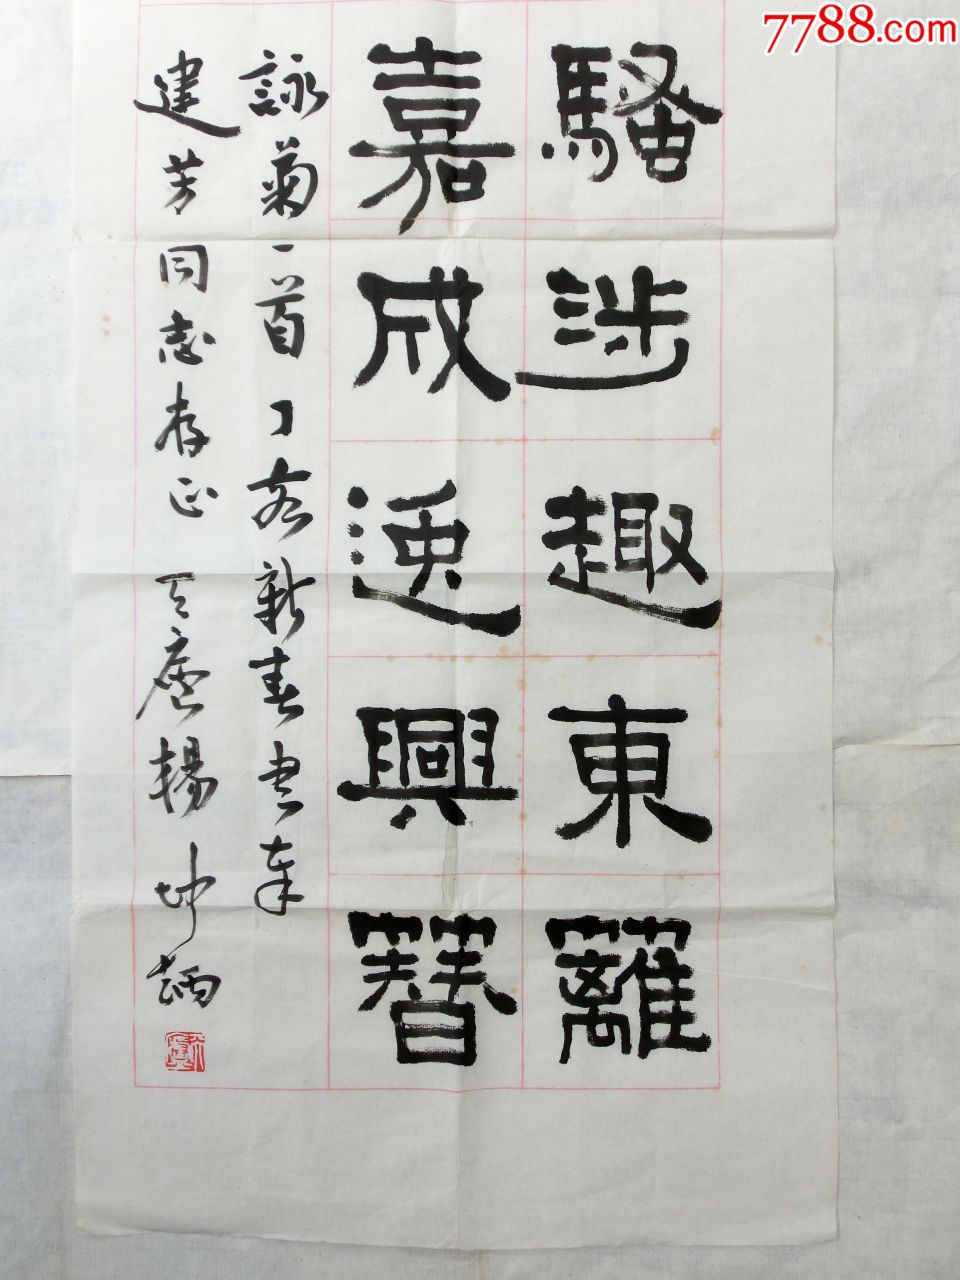 7788.com
騷涉趣東籬
嘉成逸興簪
詠菊一首丁 新春書奉
建芳同志存正 天廬楊坤炳